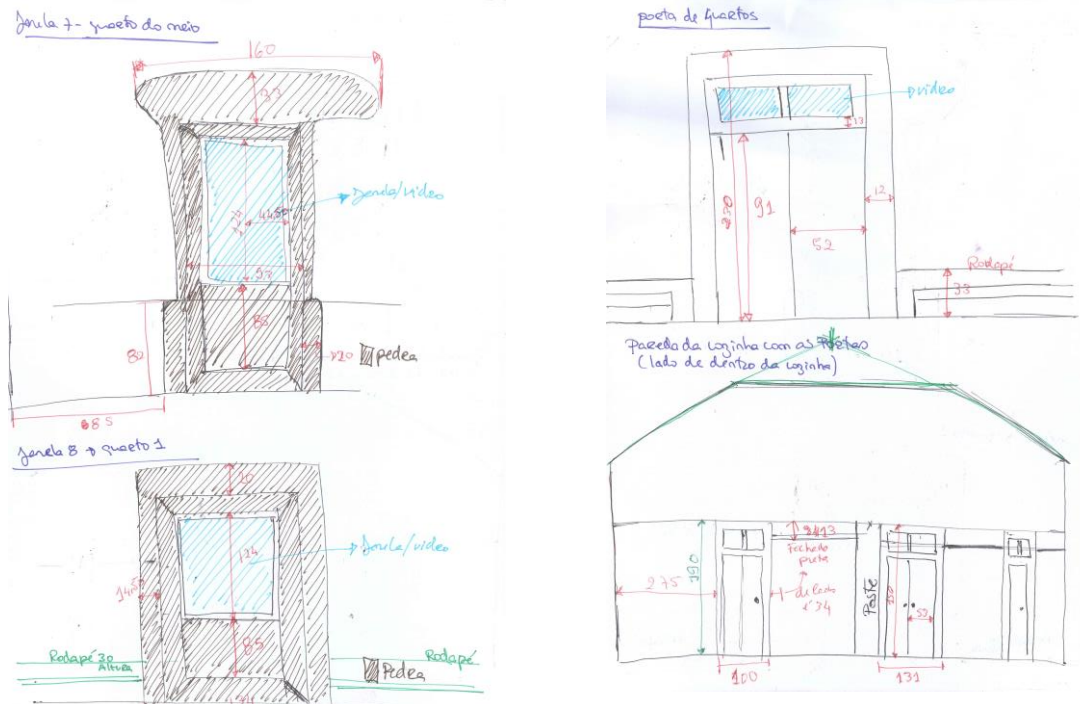 Janela 7 - quarto do meio
160
33
Janela/vidro
44,50
97
88
82
20
pedra
685
Janela 8 → quarto 1
20
124
Janela/vidro
14,50
85
Rodapé 30
Altura
Rodapé
Pedra
porta de quartos
vidro
13
230
91
12
52
Rodapé
33
Parede da cozinha com as Portas
(lado de dentro da cozinha)
275
190
13
Fechado
preto
de lado
é 34
Poste
230
53
100
131